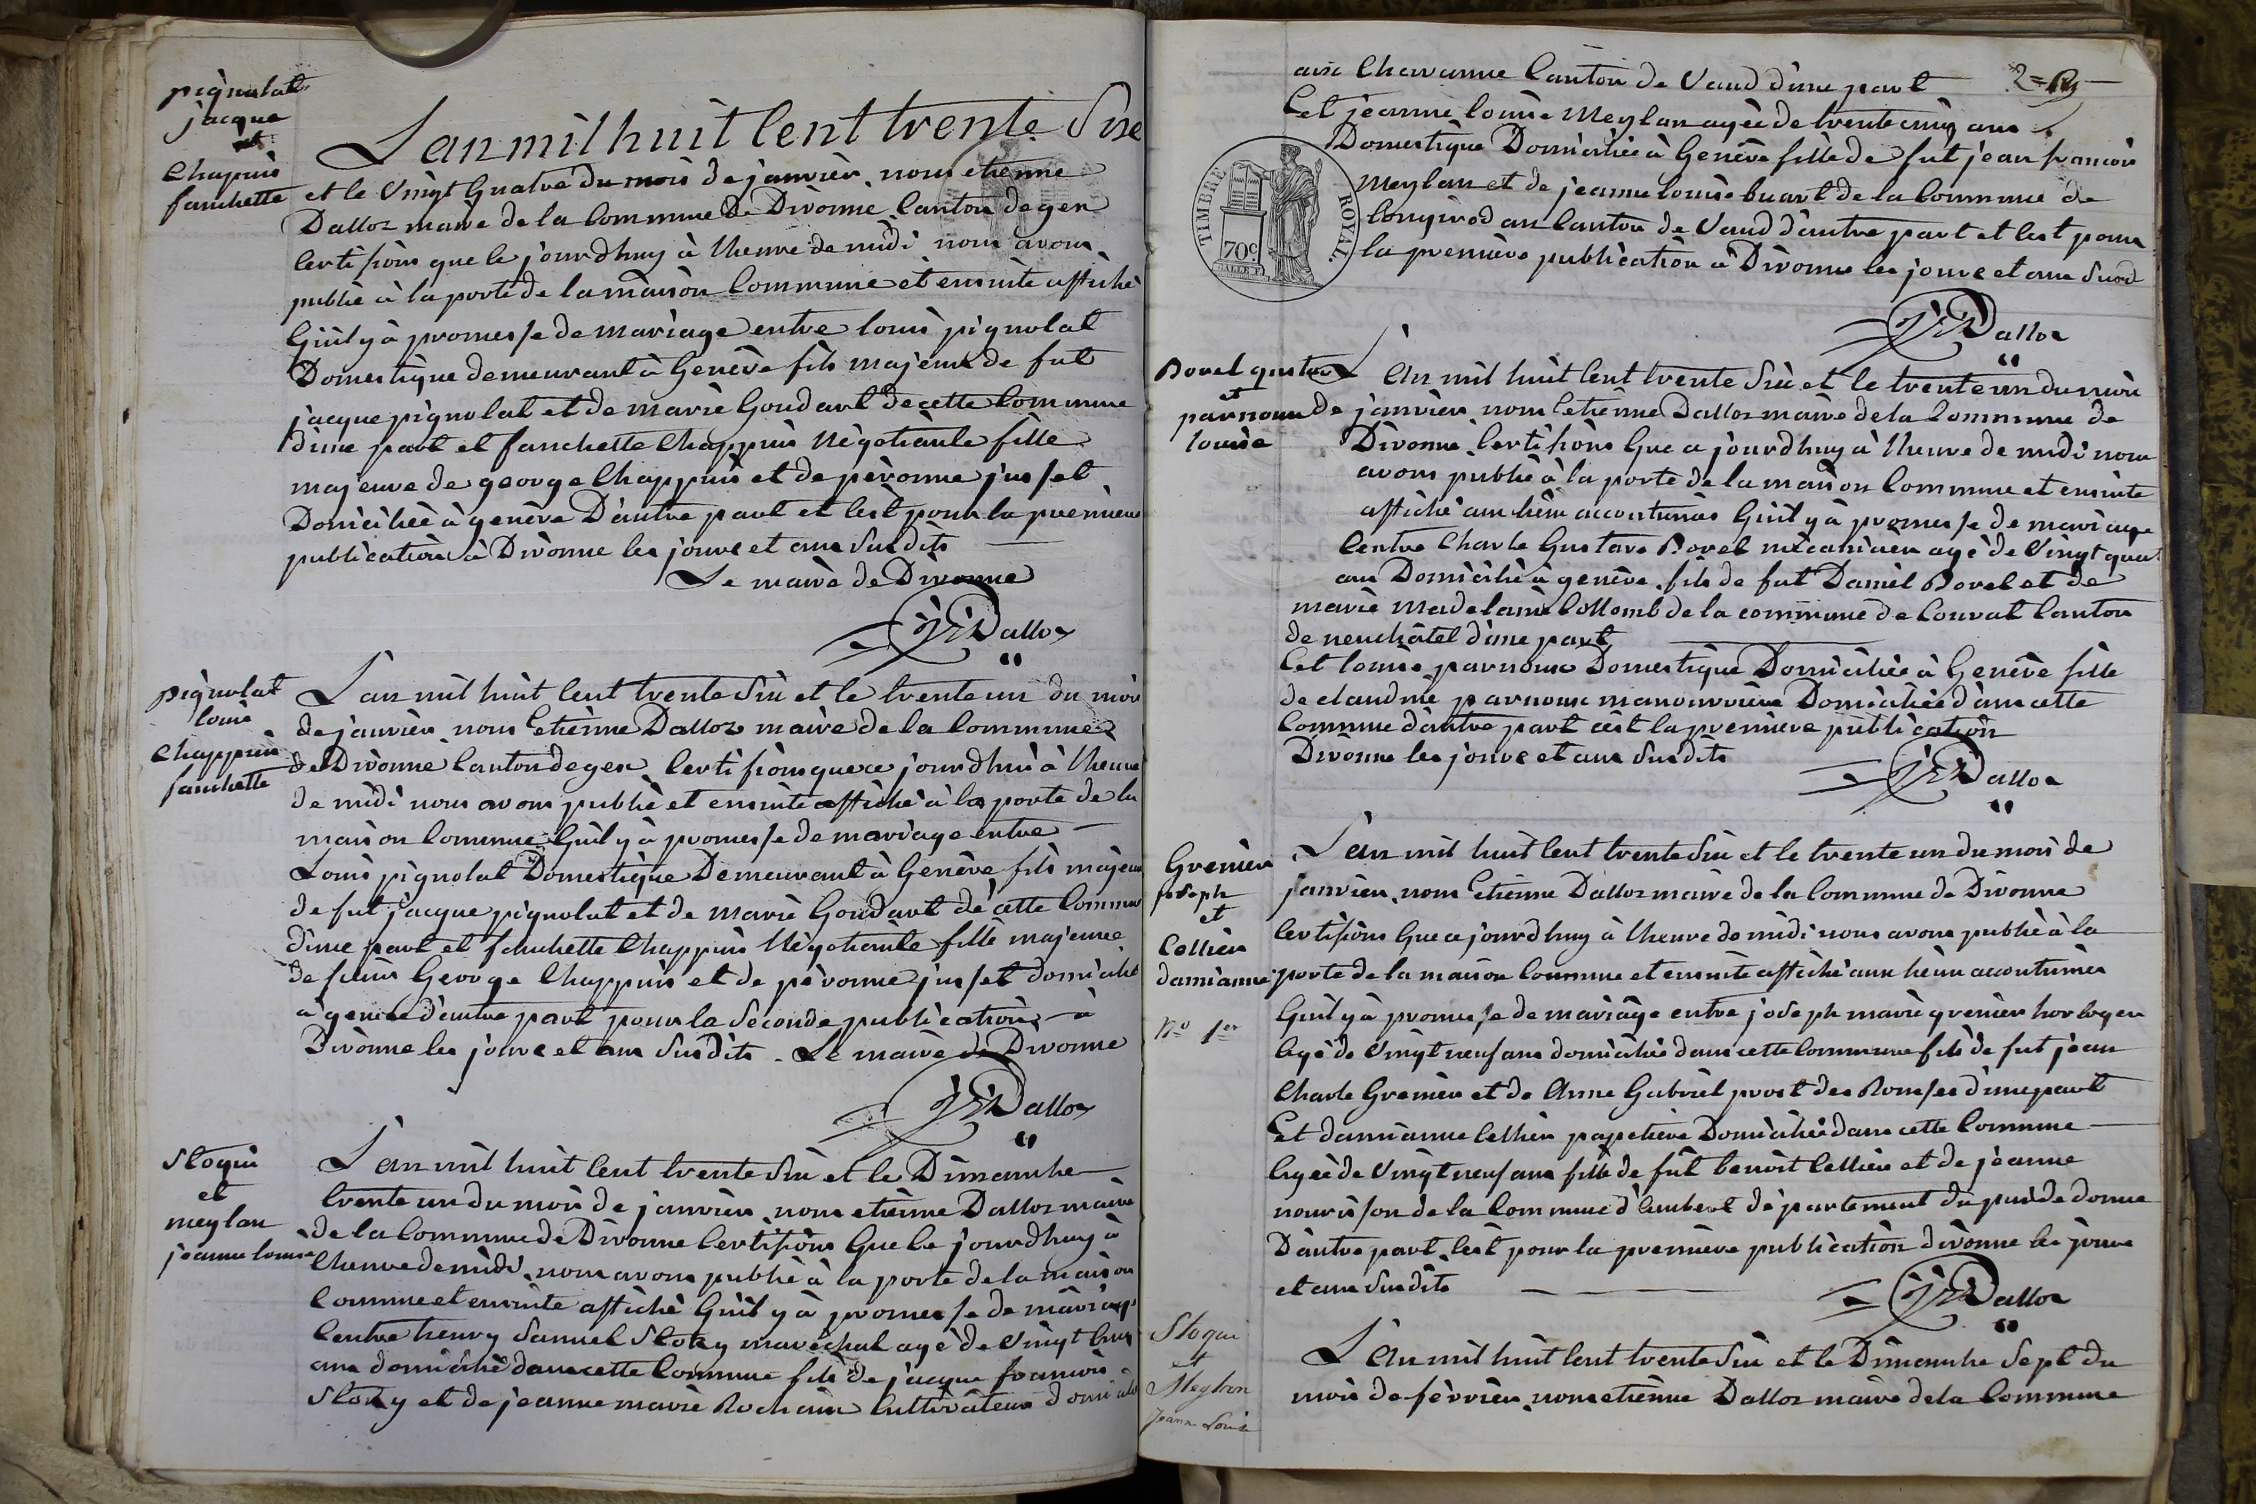 pignolat
jacque
et
Chapuis
fanchette
L'an mil huit Cent trente Six
et le Vingt Quatre du mois de janvier, nous etienne
Dalloz maire de la Commune De Divonne Canton de gex
Certifions que ce jourdhuy à l'heure de midi nous avons
publié à la porte de la maison Commune et ensuite affiché
Quil y à promesse de mariage entre louis pignolat
Domestique demeurant à Genève fils majeur de fut
jacque pignolat et de marie Goudard de cette Commune
d'une part et fanchette Chappuis Négotiante fille
majeure de george Chappuis et de péronne jusset
Domiciliée à genève D'autre part et C'est pour la première
publication à Divonne les jour et an Susdits
Le maire de Divonne
J E Dalloz
pignolat
louis
Chappuis
fanchette
L'an mil huit Cent trente Six et le trente un du mois
de janvier nous Etienne Dalloz maire de la Commune
de Divonne Canton de gex Certifions que ce jourdhui à l'heure
de midi nous avons publié et ensuite affiché à la porte de la
maison Commune Quil y à promesse de mariage entre
Louis pignolat Domestique Demeurant à Genève fils majeur
de fut jacque pignolat et de marie Goudard de cette Commune
d'une part et fanchette Chappuis Négotiante fille majeure
de George Chappuis et de péronne jusset domicilié
à genève d'autre part pour la Seconde publication à
Divonne les jour et an Susdits. Le maire de Divonne
J E Dalloz
Stoqui
et
meylan
jeanne louise
L'an mil huit Cent trente Six et le Dimanche
trente un du mois de janvier, nous etienne Dalloz maire
de la Commune de Divonne Certifions Que ce jourdhuy à
l'heure de midi, nous avons publié à la porte de la maison
Commune et ensuite affiché Quil y à promesse de mariage
Centre henry Samuel Stoky maréchal agé de Vingt
ans domicilié dans cette Commune fils de jacque francois
Stoky et de jeanne marie Rochain Cultivateur
Chavanne Canton de Vaud d'une part
2=
Et jeanne louise Meylan agée de trente cinq ans
Domestique Domiciliée à Genève fille de fut jean francois
Meylan et de jeanne louise buart de la Commune de
longirod au Canton de Vaud d'autre part et C'est pour
la première publication à Divonne les jour et an Susd
TIMBRE ROYAL.
70c
J E Dalloz
Bovel gustave
et
parnoux
louise
L'an mil huit Cent trente Six et le trente un du mois
de janvier nous Etienne Dalloz maire de la Commune de
Divonne, Certifions Que ce jourdhuy à l'heure de midi nous
avons publié à la porte de la maison Commune et ensuite
affiché aux lieux accoutumés Quil y à promesse de mariage
Centre Charle Gustave Bovel mécanicien agé de Vingt quat
ans Domicilié à genève, fils de fut Daniel Bovel et de
marie Madelaine Collomb de la commune de Couvat Canton
de neuchâtel d'une part
Et louise parnoux Domestique Domiciliée à Genève fille
de claudine parnoux manouvrière Domiciliée dans cette
Commune d'autre part c'est la première publication
Divonne les jour et an Susdits
J E Dalloz
Grenier
joseph
et
Cellier
damianne
No 1er
L'an mil huit Cent trente Six et le trente un du mois de
janvier, nous Etienne Dalloz maire de la Commune de Divonne
Certifions Que ce jourdhuy à l'heure de midi nous avons publié à la
porte de la maison Commune et ensuite affiché aux lieux accoutumés
Quil y à promesse de mariage entre joseph marie grenier horloger
Agé de Vingt neuf ans domicilié dans cette Commune fils de fut jean
Charle Grenier et de Anne Gabriel prost des Rousses d'une part
Et damianne Cellier papetière Domiciliée dans cette Commune
Agée de Vingt neuf ans fille de fût benoit Cellier et de jeanne
nourisson de la Commune d'Ambert département du puis de dome
D'autre part, C'est pour la première publication divonne les jour
et an Susdits
J E Dalloz
Stoqui
et
Meylan
Jeanne Louise
L'An mil huit Cent trente Six et le Dimanche Sept du
mois de fevrier, nous etienne Dalloz maire de la Commune